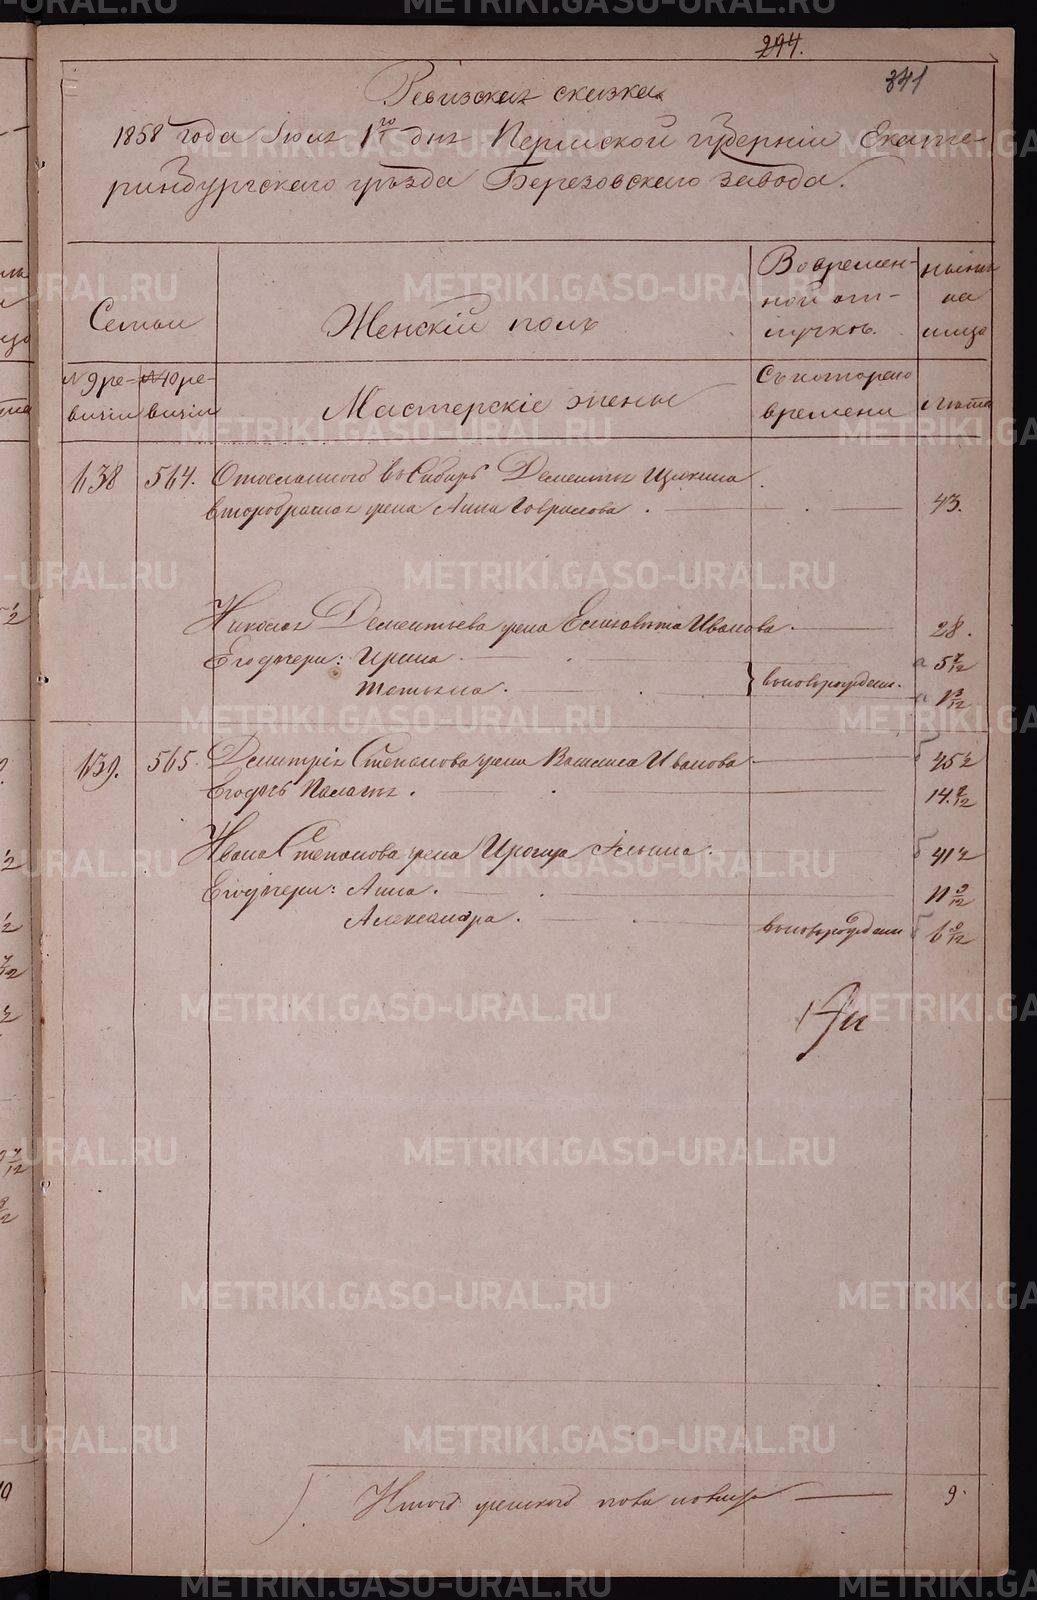 294.
341
Ревизская сказка
1858 года Июля 1го дня Пермской губернии Екате-
ринбургского уезда Березовского завода.
Семьи
Женскій полъ
Во времен-
ной от-
лучке.
ныне
на
лицо
№ 9 ре-
визіи
№ 10 ре-
визіи
Мастерскіе жены
Съ котораго
времени
лета
638 564. Отосланного в Сибирь Дементья
второбрачная жена Анна Гаврилова 43.
Николая Дементьева жена Елизавета Иванова 28.
Его дочери: Ирина 5 7/12
Татьяна. вновьрожден. 1 3/12
639. 565. Дмитрія Степанова жена Василиса Иванова 45 1/2
Его дочь Палагия. 14
Ивана Степанова жена Ильина. 41 1/2
Его дочери: Анна. 11 9/12
Александра. вновьрожден 6 9/12
Итого женского пола налицо 9.